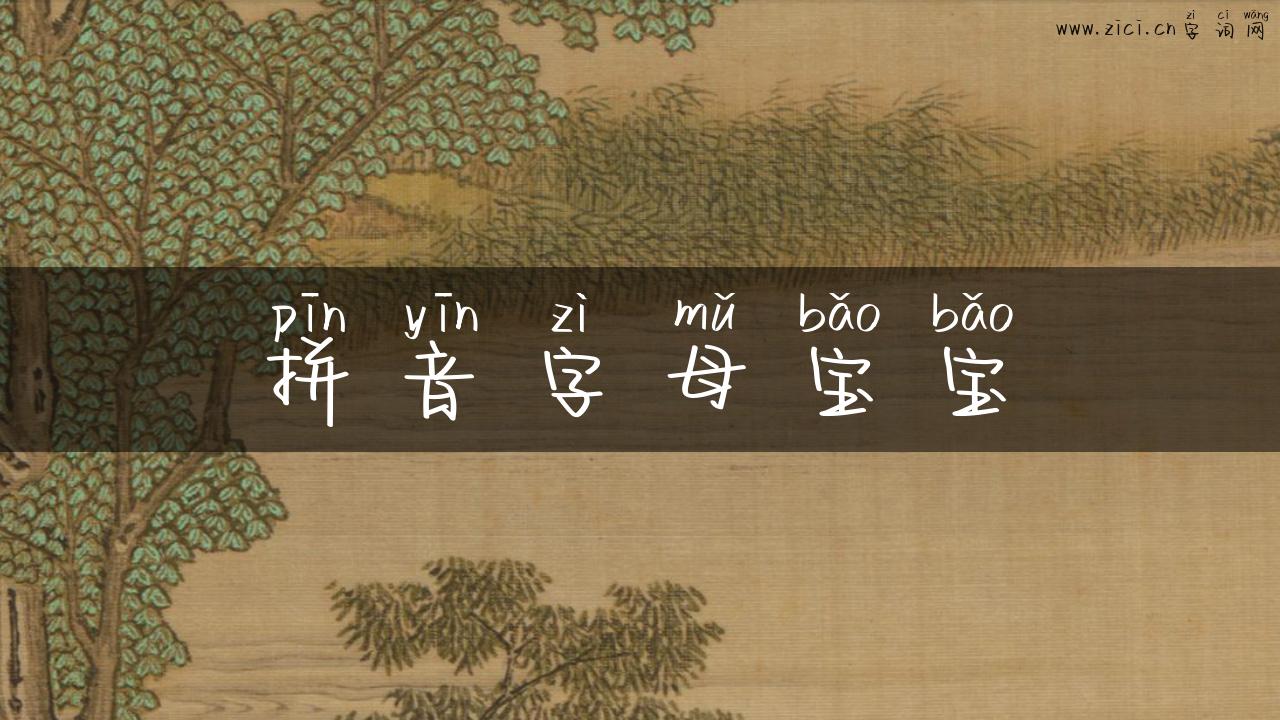 zì cí wǎng
www.zici.cn字词网
pīn yīn zì mǔ bǎo bǎo
拼音字母宝宝